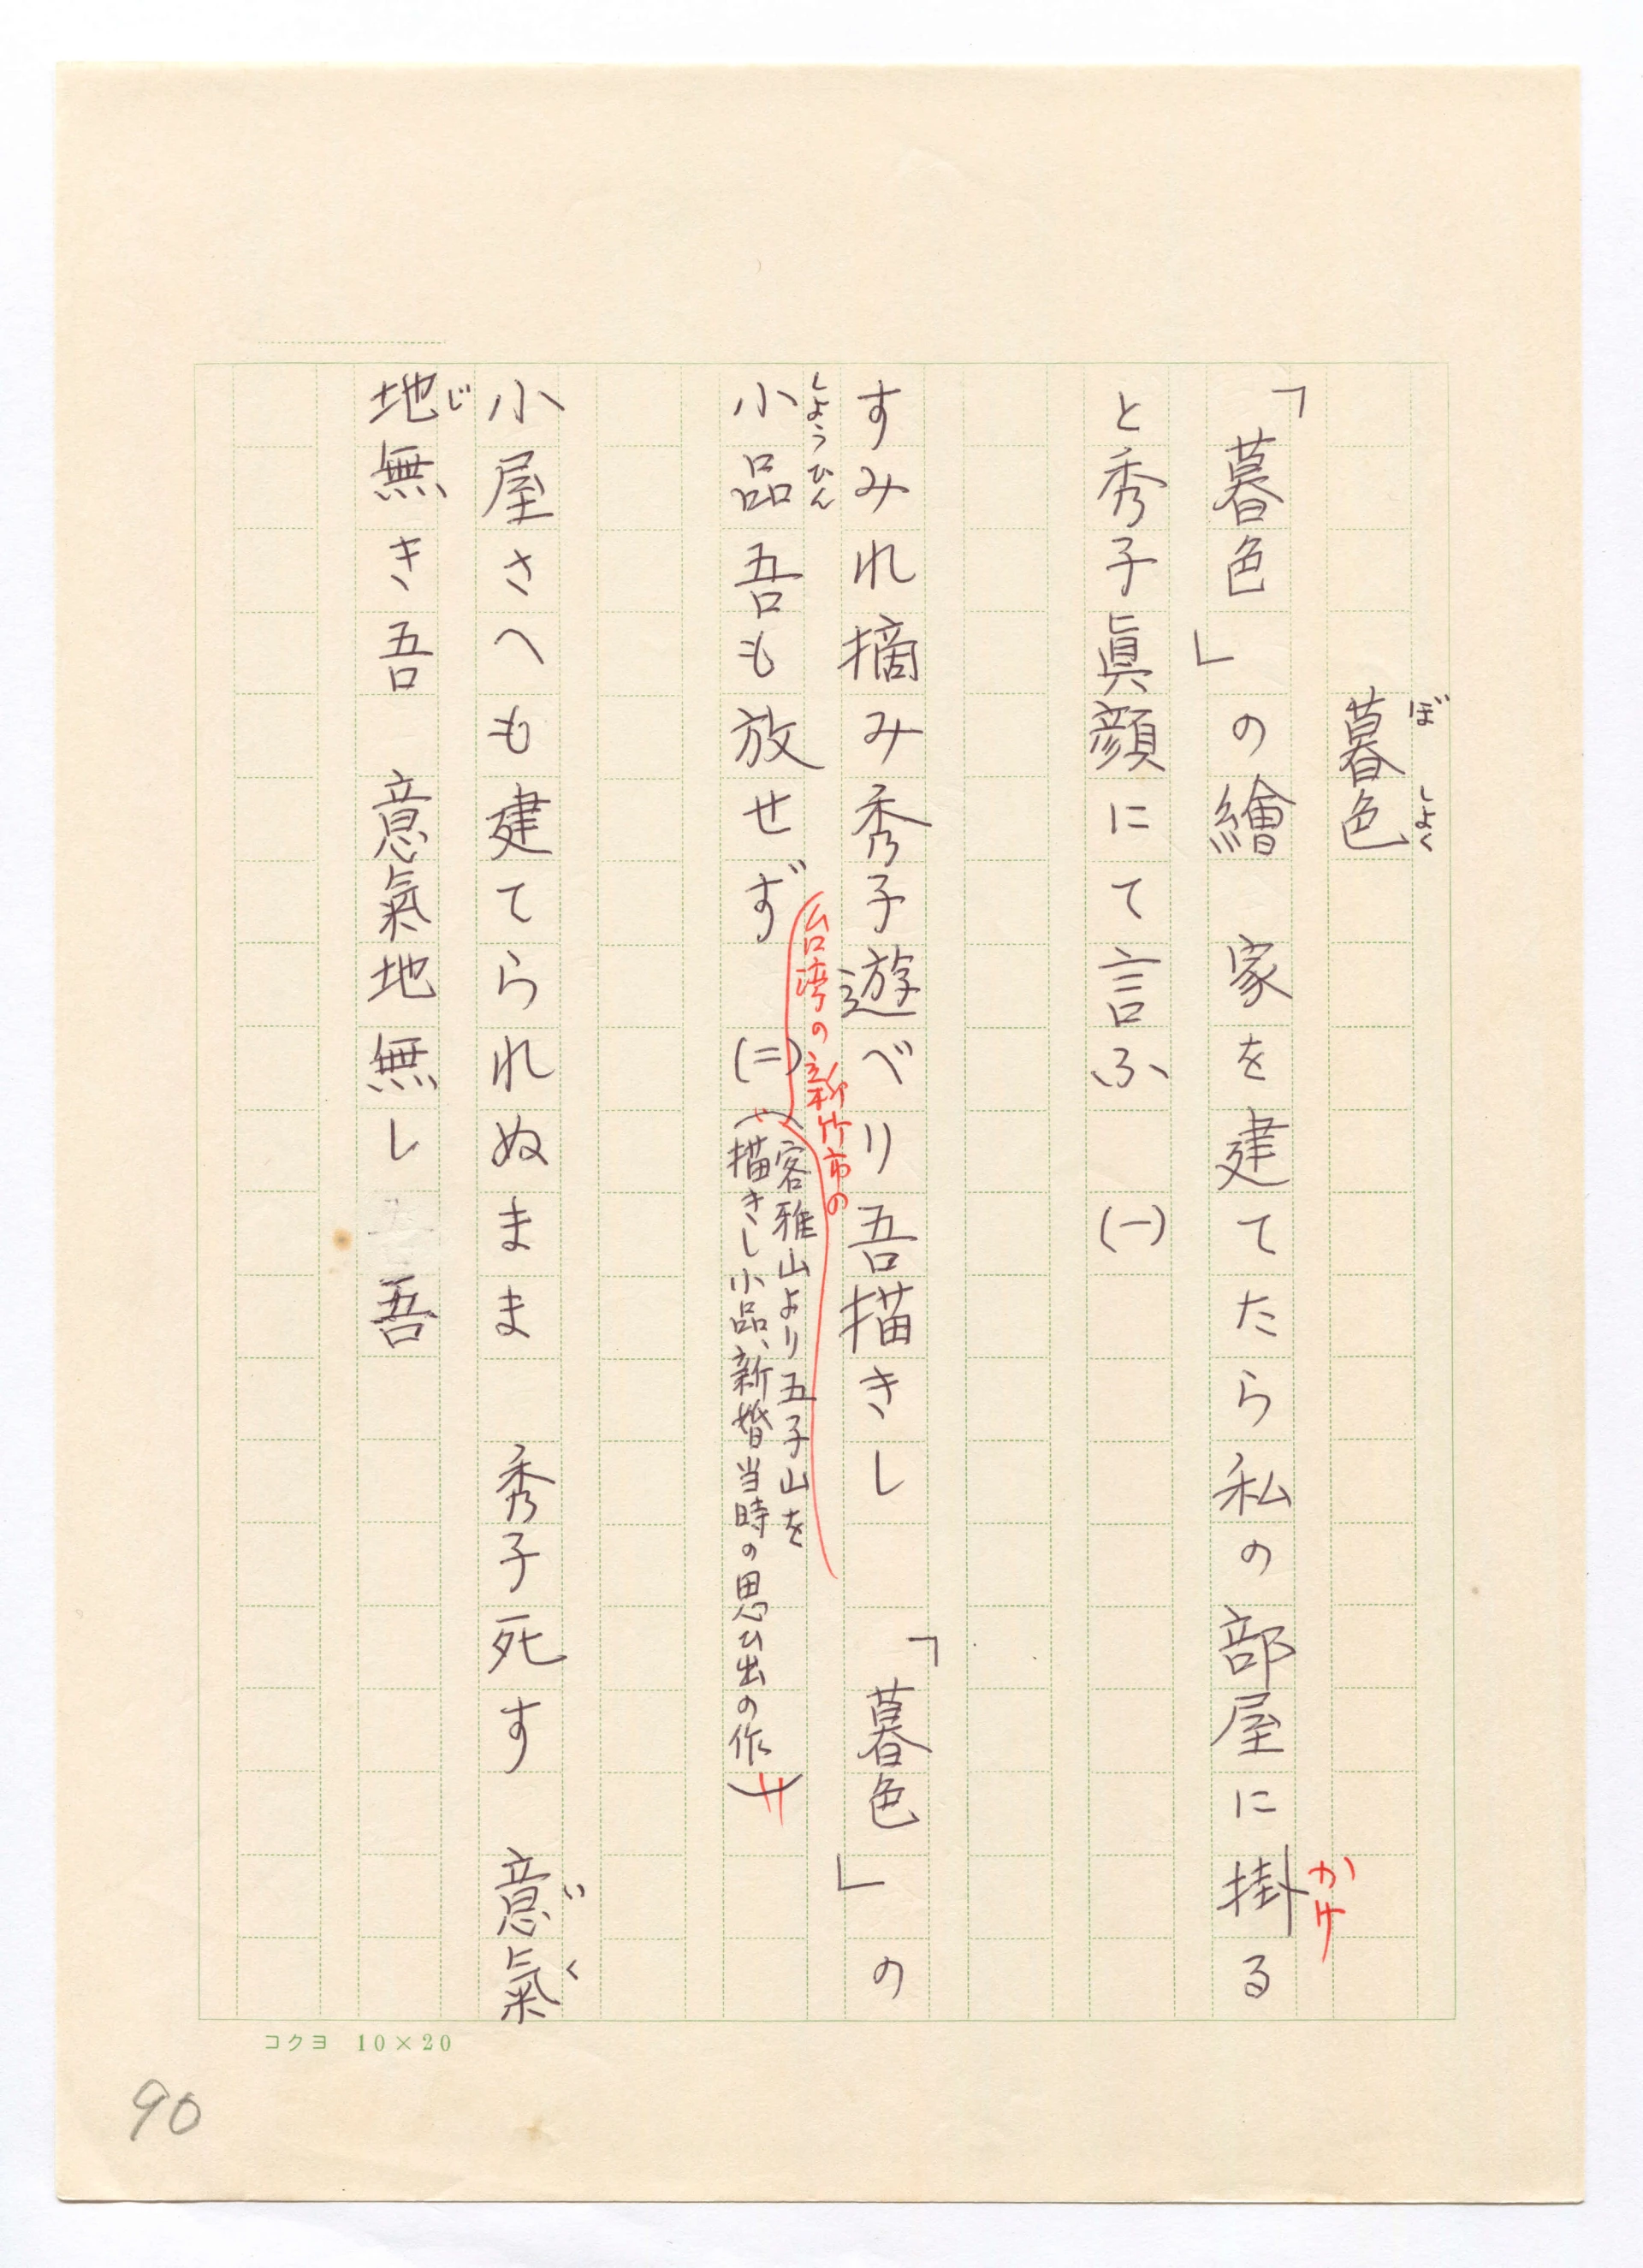 暮色
ぼ しよく
「暮色」の繪 家を建てたら私の部屋に掛る
かけ
と秀子眞顔にて言ふ (一)
すみれ摘み秀子遊べり吾描きし 「暮色」の
小品吾も放せず (二)
しようひん
台湾の新竹市の
(客雅山より五子山を
描きし小品、新婚当時の思ひ出の作)
小屋さへも建てられぬまま 秀子死す 意氣
いく
地無き吾 意氣地無し 吾
じ
コクヨ 10×20
90